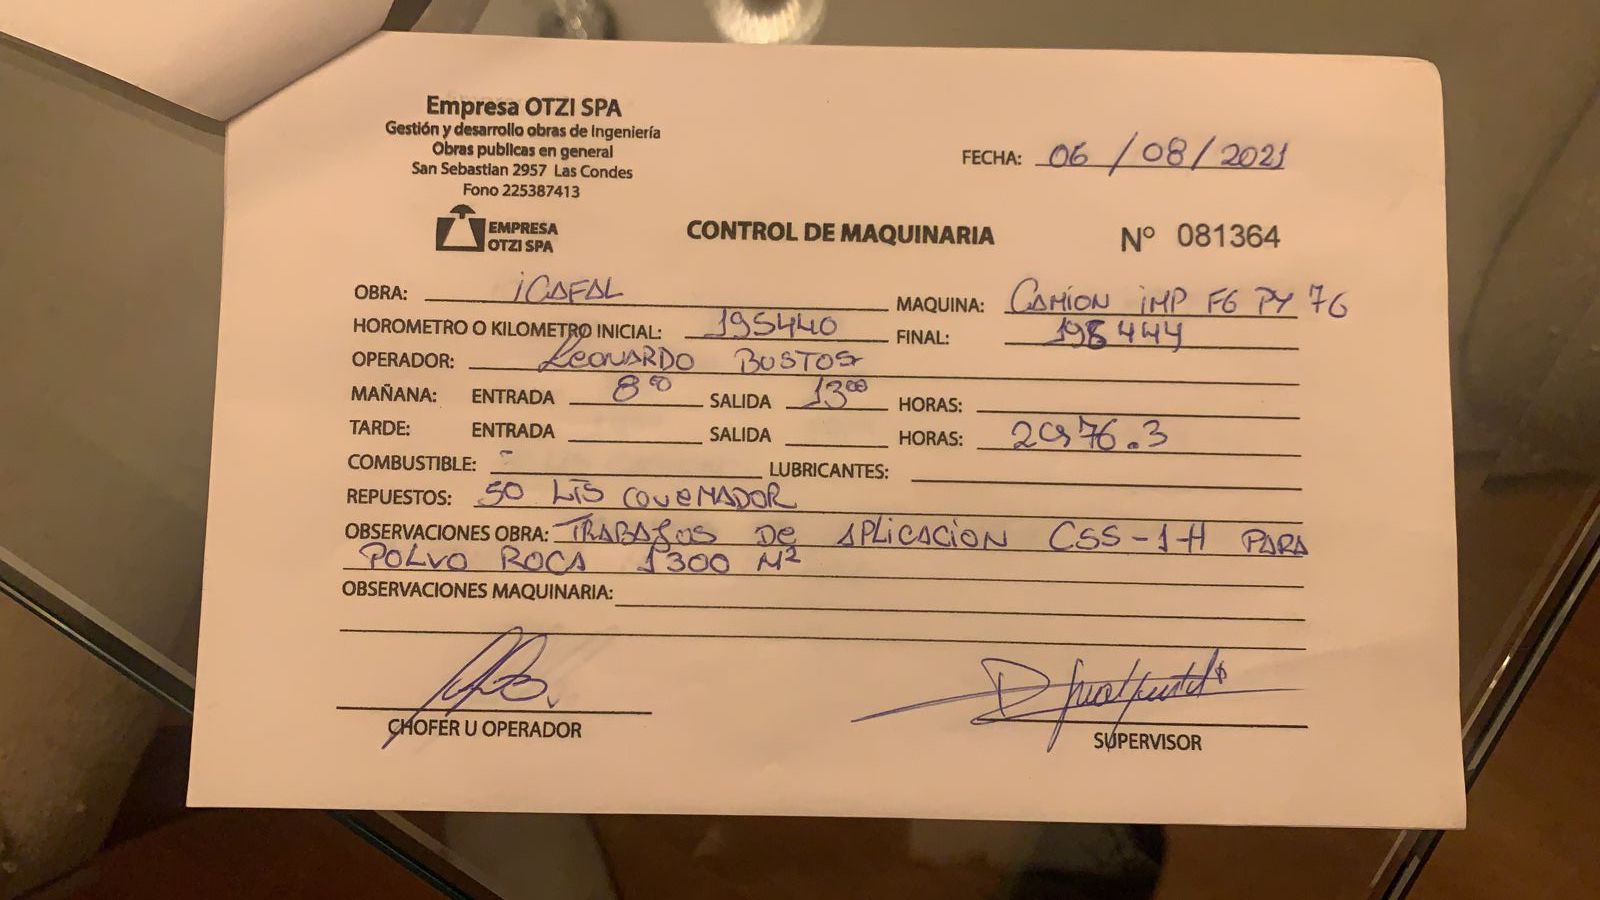 Empresa OTZI SPA
Gestión y desarrollo obras de Ingeniería
Obras publicas en general
San Sebastian 2957 Las Condes
Fono 225387413
FECHA: 06/08/2021
EMPRESA
OTZI SPA
CONTROL DE MAQUINARIA
N° 081364
OBRA: iCAFAL MAQUINA: CAMION IMP FG PY 76
HOROMETRO O KILOMETRO INICIAL: 195440 FINAL: 195444
OPERADOR: Leonardo Bustos
MAÑANA: ENTRADA 8:00 SALIDA 13:00 HORAS:
TARDE: ENTRADA SALIDA HORAS: 76.3
COMBUSTIBLE: - LUBRICANTES:
REPUESTOS: 50 LTS
OBSERVACIONES OBRA: TRABAJOS DE APLICACION CSS-1-H PARA
POLVO ROCA 1300 M²
OBSERVACIONES MAQUINARIA:
CHOFER U OPERADOR
SUPERVISOR